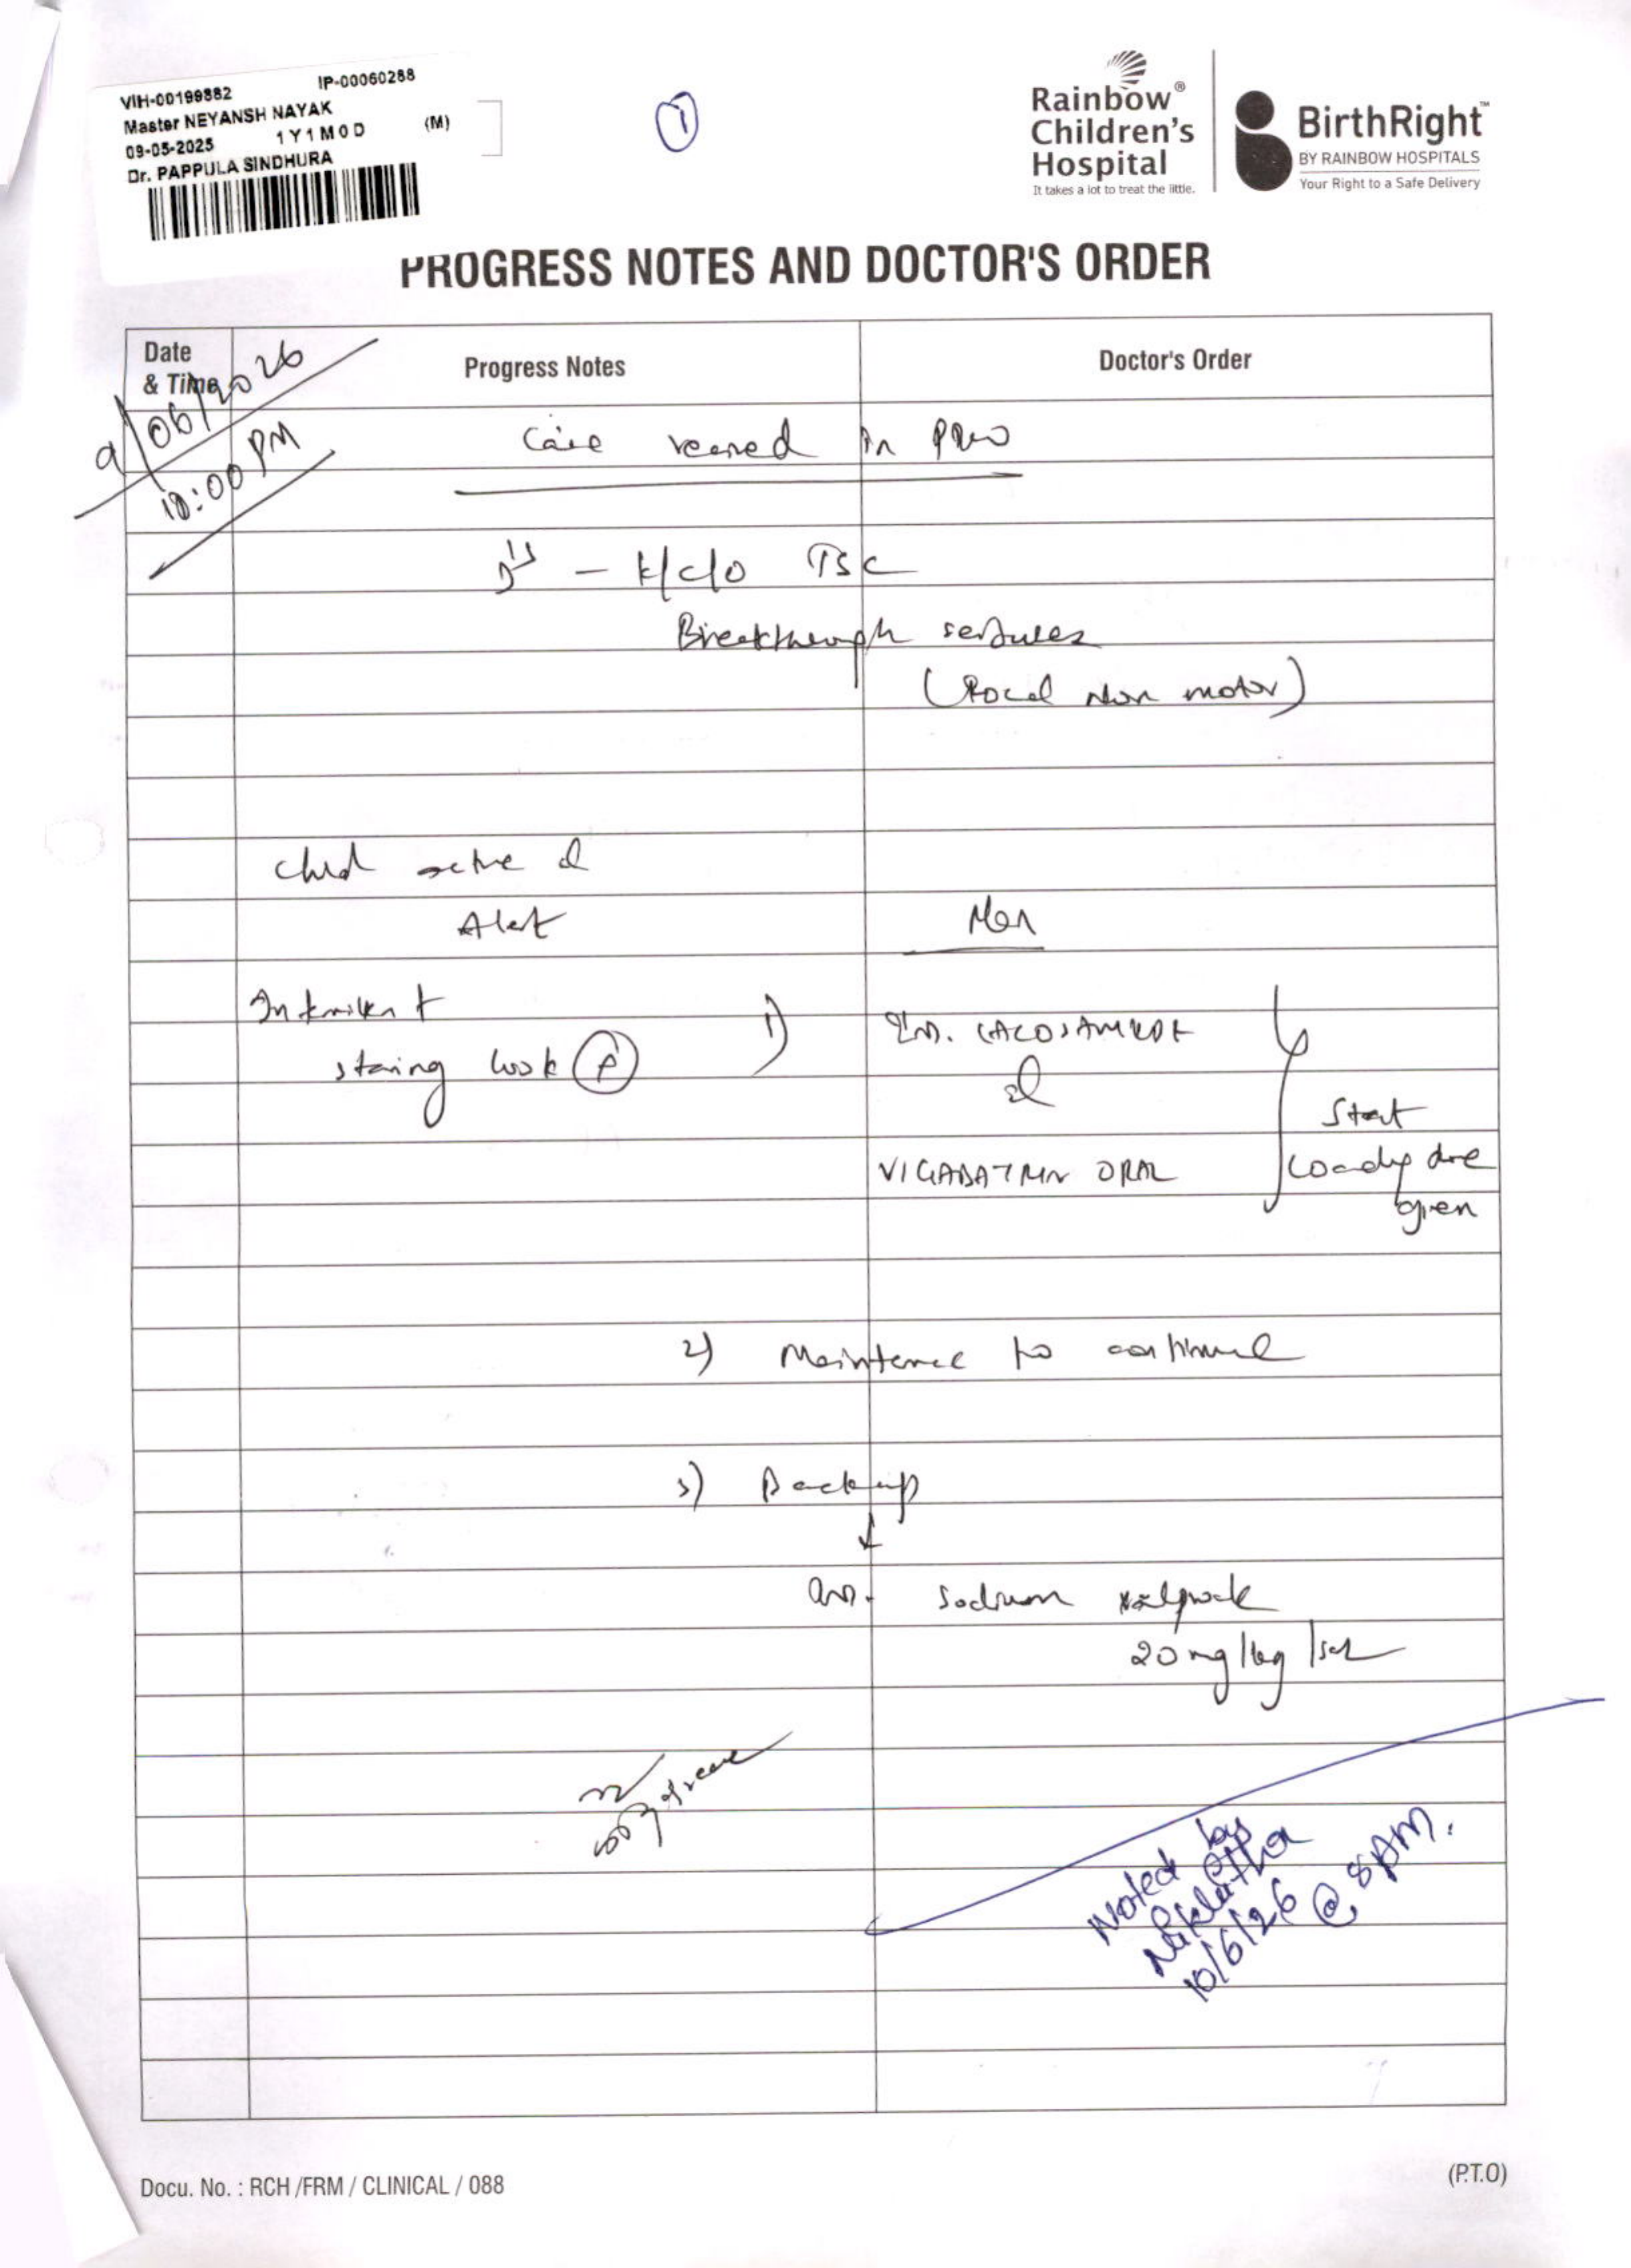 VIH-00199882 IP-00060288
Master NEYANSH NAYAK
09-05-2025 1Y1M0D (M)
Dr. PAPPULA SINDHURA
1
Rainbow®
Children's
Hospital
It takes a lot to treat the little.
BirthRight™
BY RAINBOW HOSPITALS
Your Right to a Safe Delivery
PROGRESS NOTES AND DOCTOR'S ORDER
Date
& Time
Progress Notes
Doctor's Order
9/06/2026
10:00 PM
in
- K/c/o TSC
Breakthrough seizures
(Focal Non motor)
Child active &
Alert
Intermittent
staring look (P)
1) LACOSAMIDE
&
VIGABATRIN ORAL
Start
Loading dose
given
2) Maintence to continue
3) Backup
↓
Sodium valproate
20 mg/kg
Noted by
10/6/26 @ 8AM.
Docu. No. : RCH /FRM / CLINICAL / 088
(P.T.O)